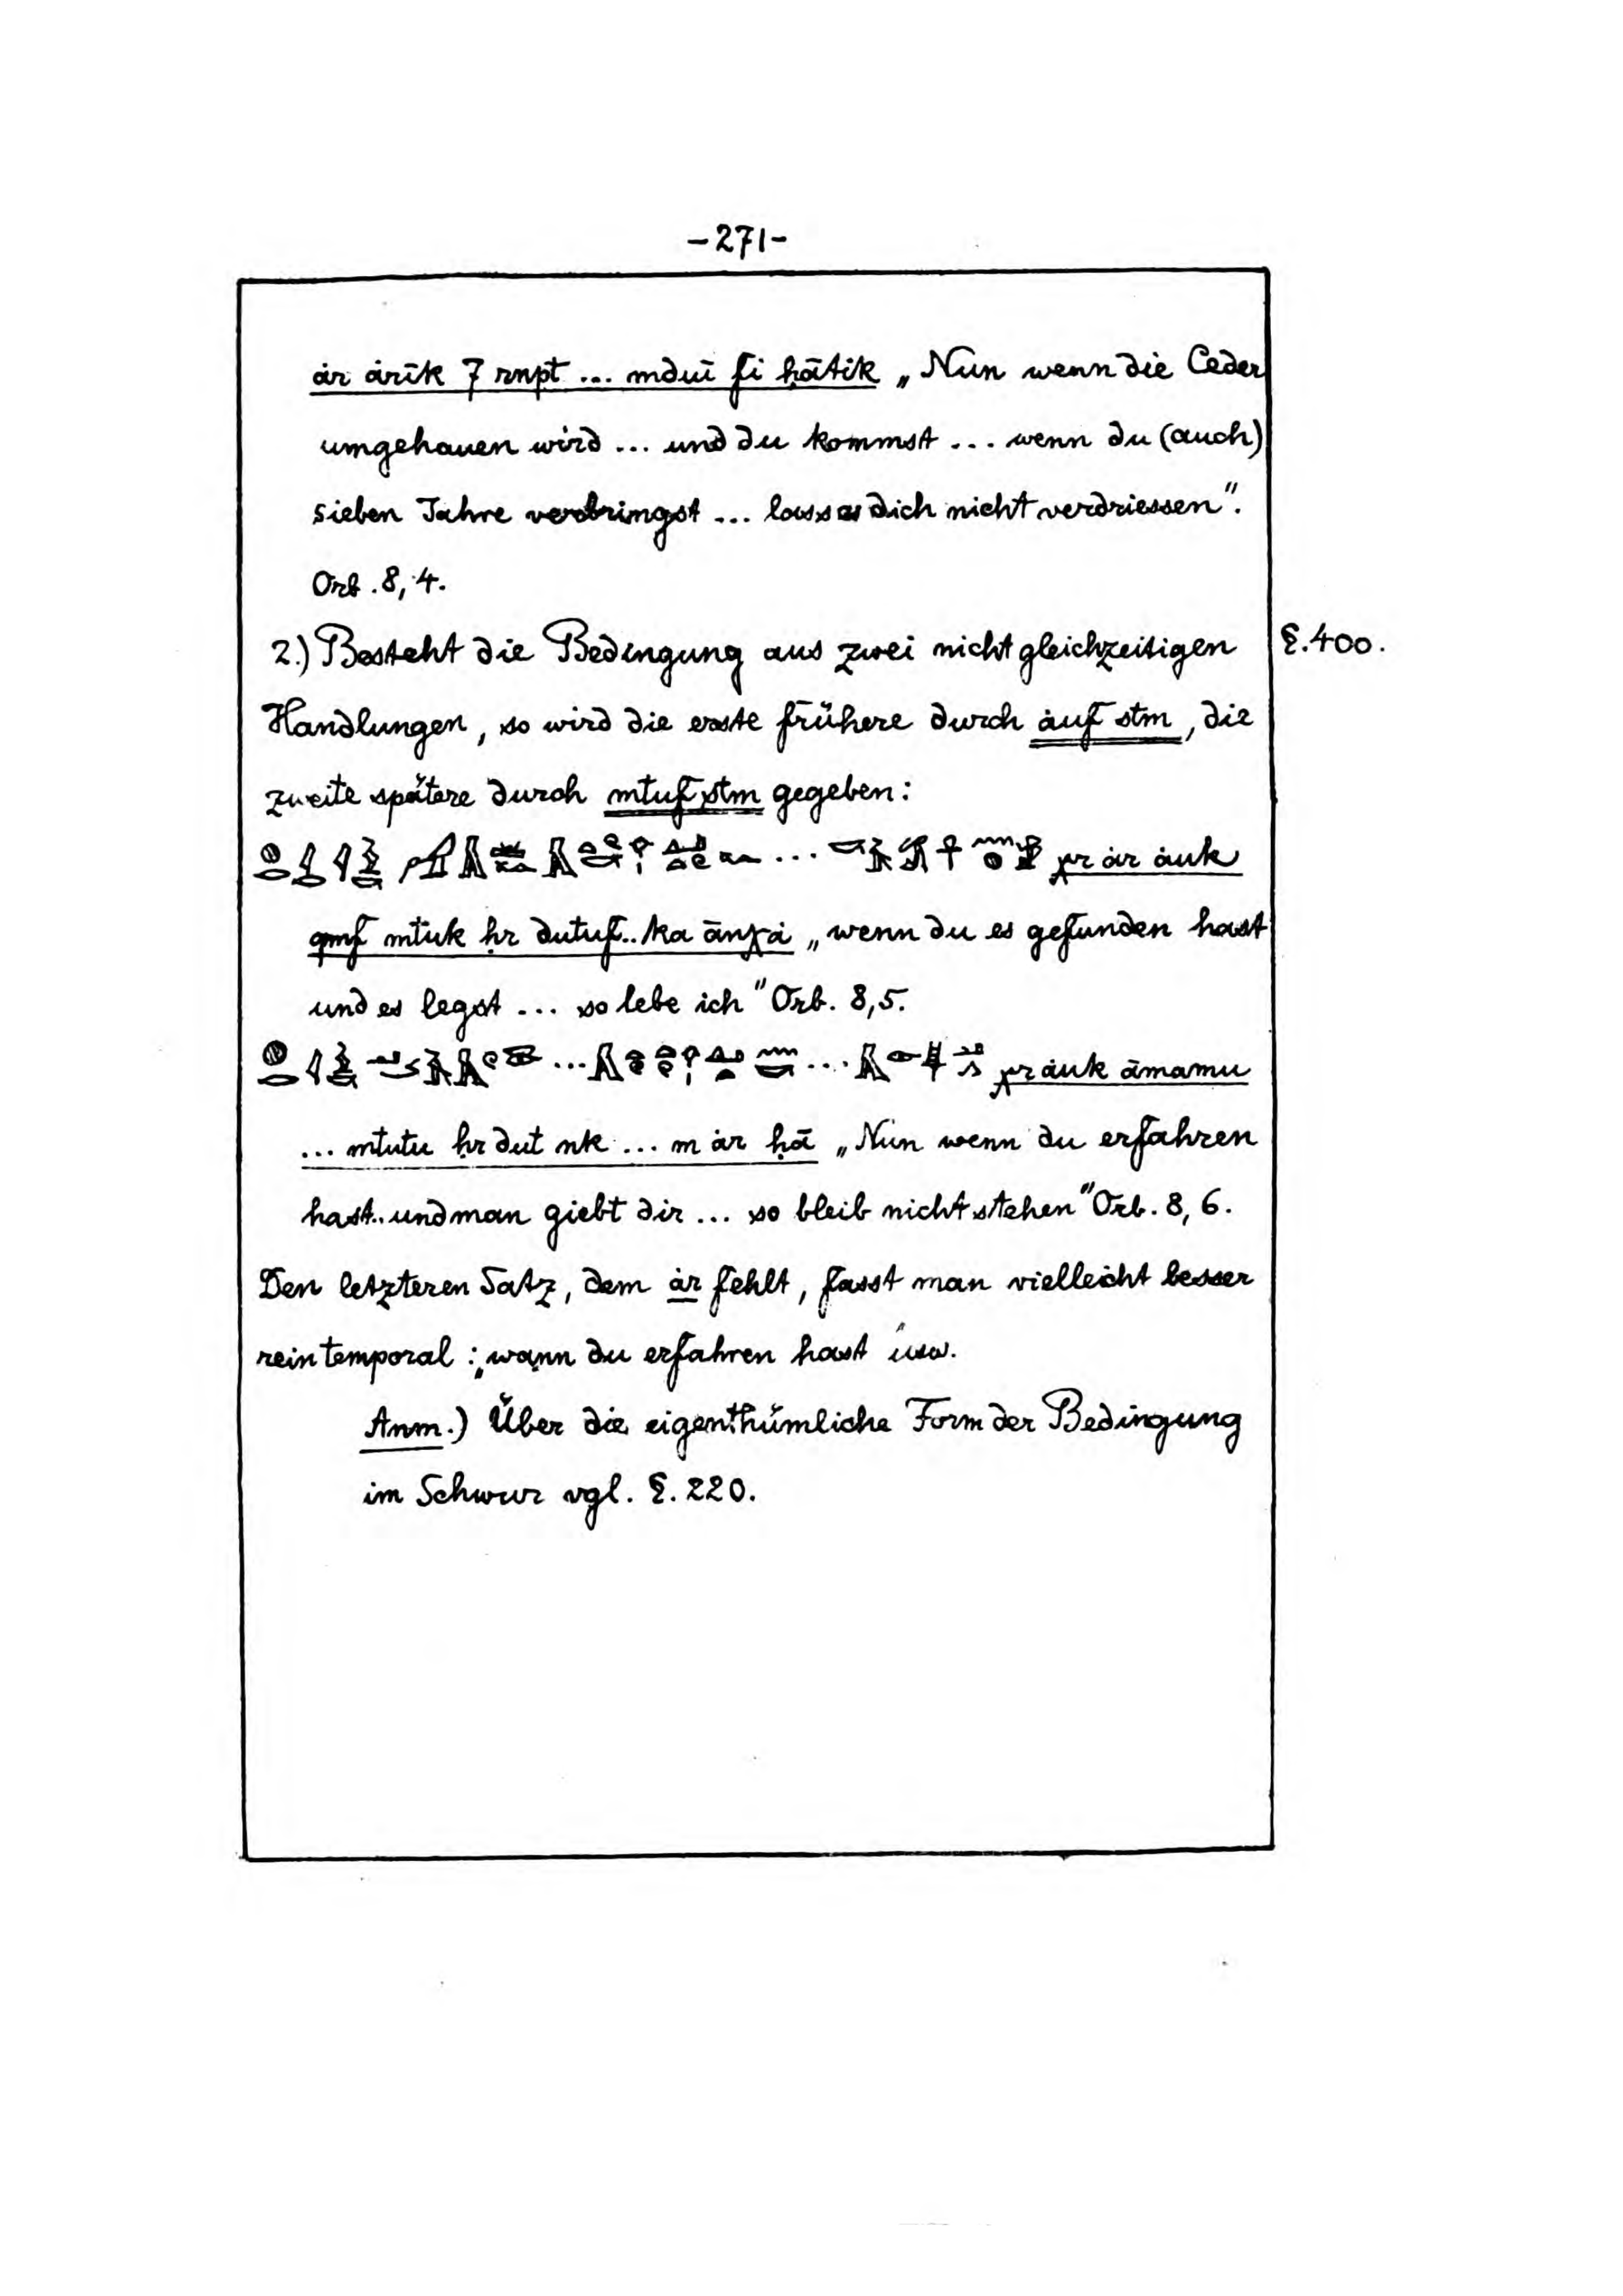 -271-
ȧr ȧrik 7 rnpt ... mduï fi ḥātik „Nun wenn die Ceder
umgehauen wird ... und du kommst ... wenn du (auch)
sieben Jahre verbringst ... lass es dich nicht verdriessen".
Orb. 8, 4.
2.) Besteht die Bedingung aus zwei nicht gleichzeitigen §. 400.
Handlungen, so wird die erste frühere durch ȧuf stm, die
zweite spätere durch mtuf stm gegeben:
χr ȧr ȧuk
qmf mtuk ḥr dutuf.. ka ānχȧ „wenn du es gefunden hast
und es legst ... so lebe ich" Orb. 8, 5.
χr ȧuk āmamu
... mtutu ḥr dut nk ... m ȧr ḥā „Nun wenn du erfahren
hast.. und man giebt dir ... so bleib nicht stehen" Orb. 8, 6.
Den letzteren Satz, dem ȧr fehlt, fasst man vielleicht besser
rein temporal: „wann du erfahren hast" usw.
Anm.) Über die eigenthümliche Form der Bedingung
im Schwur vgl. §. 220.